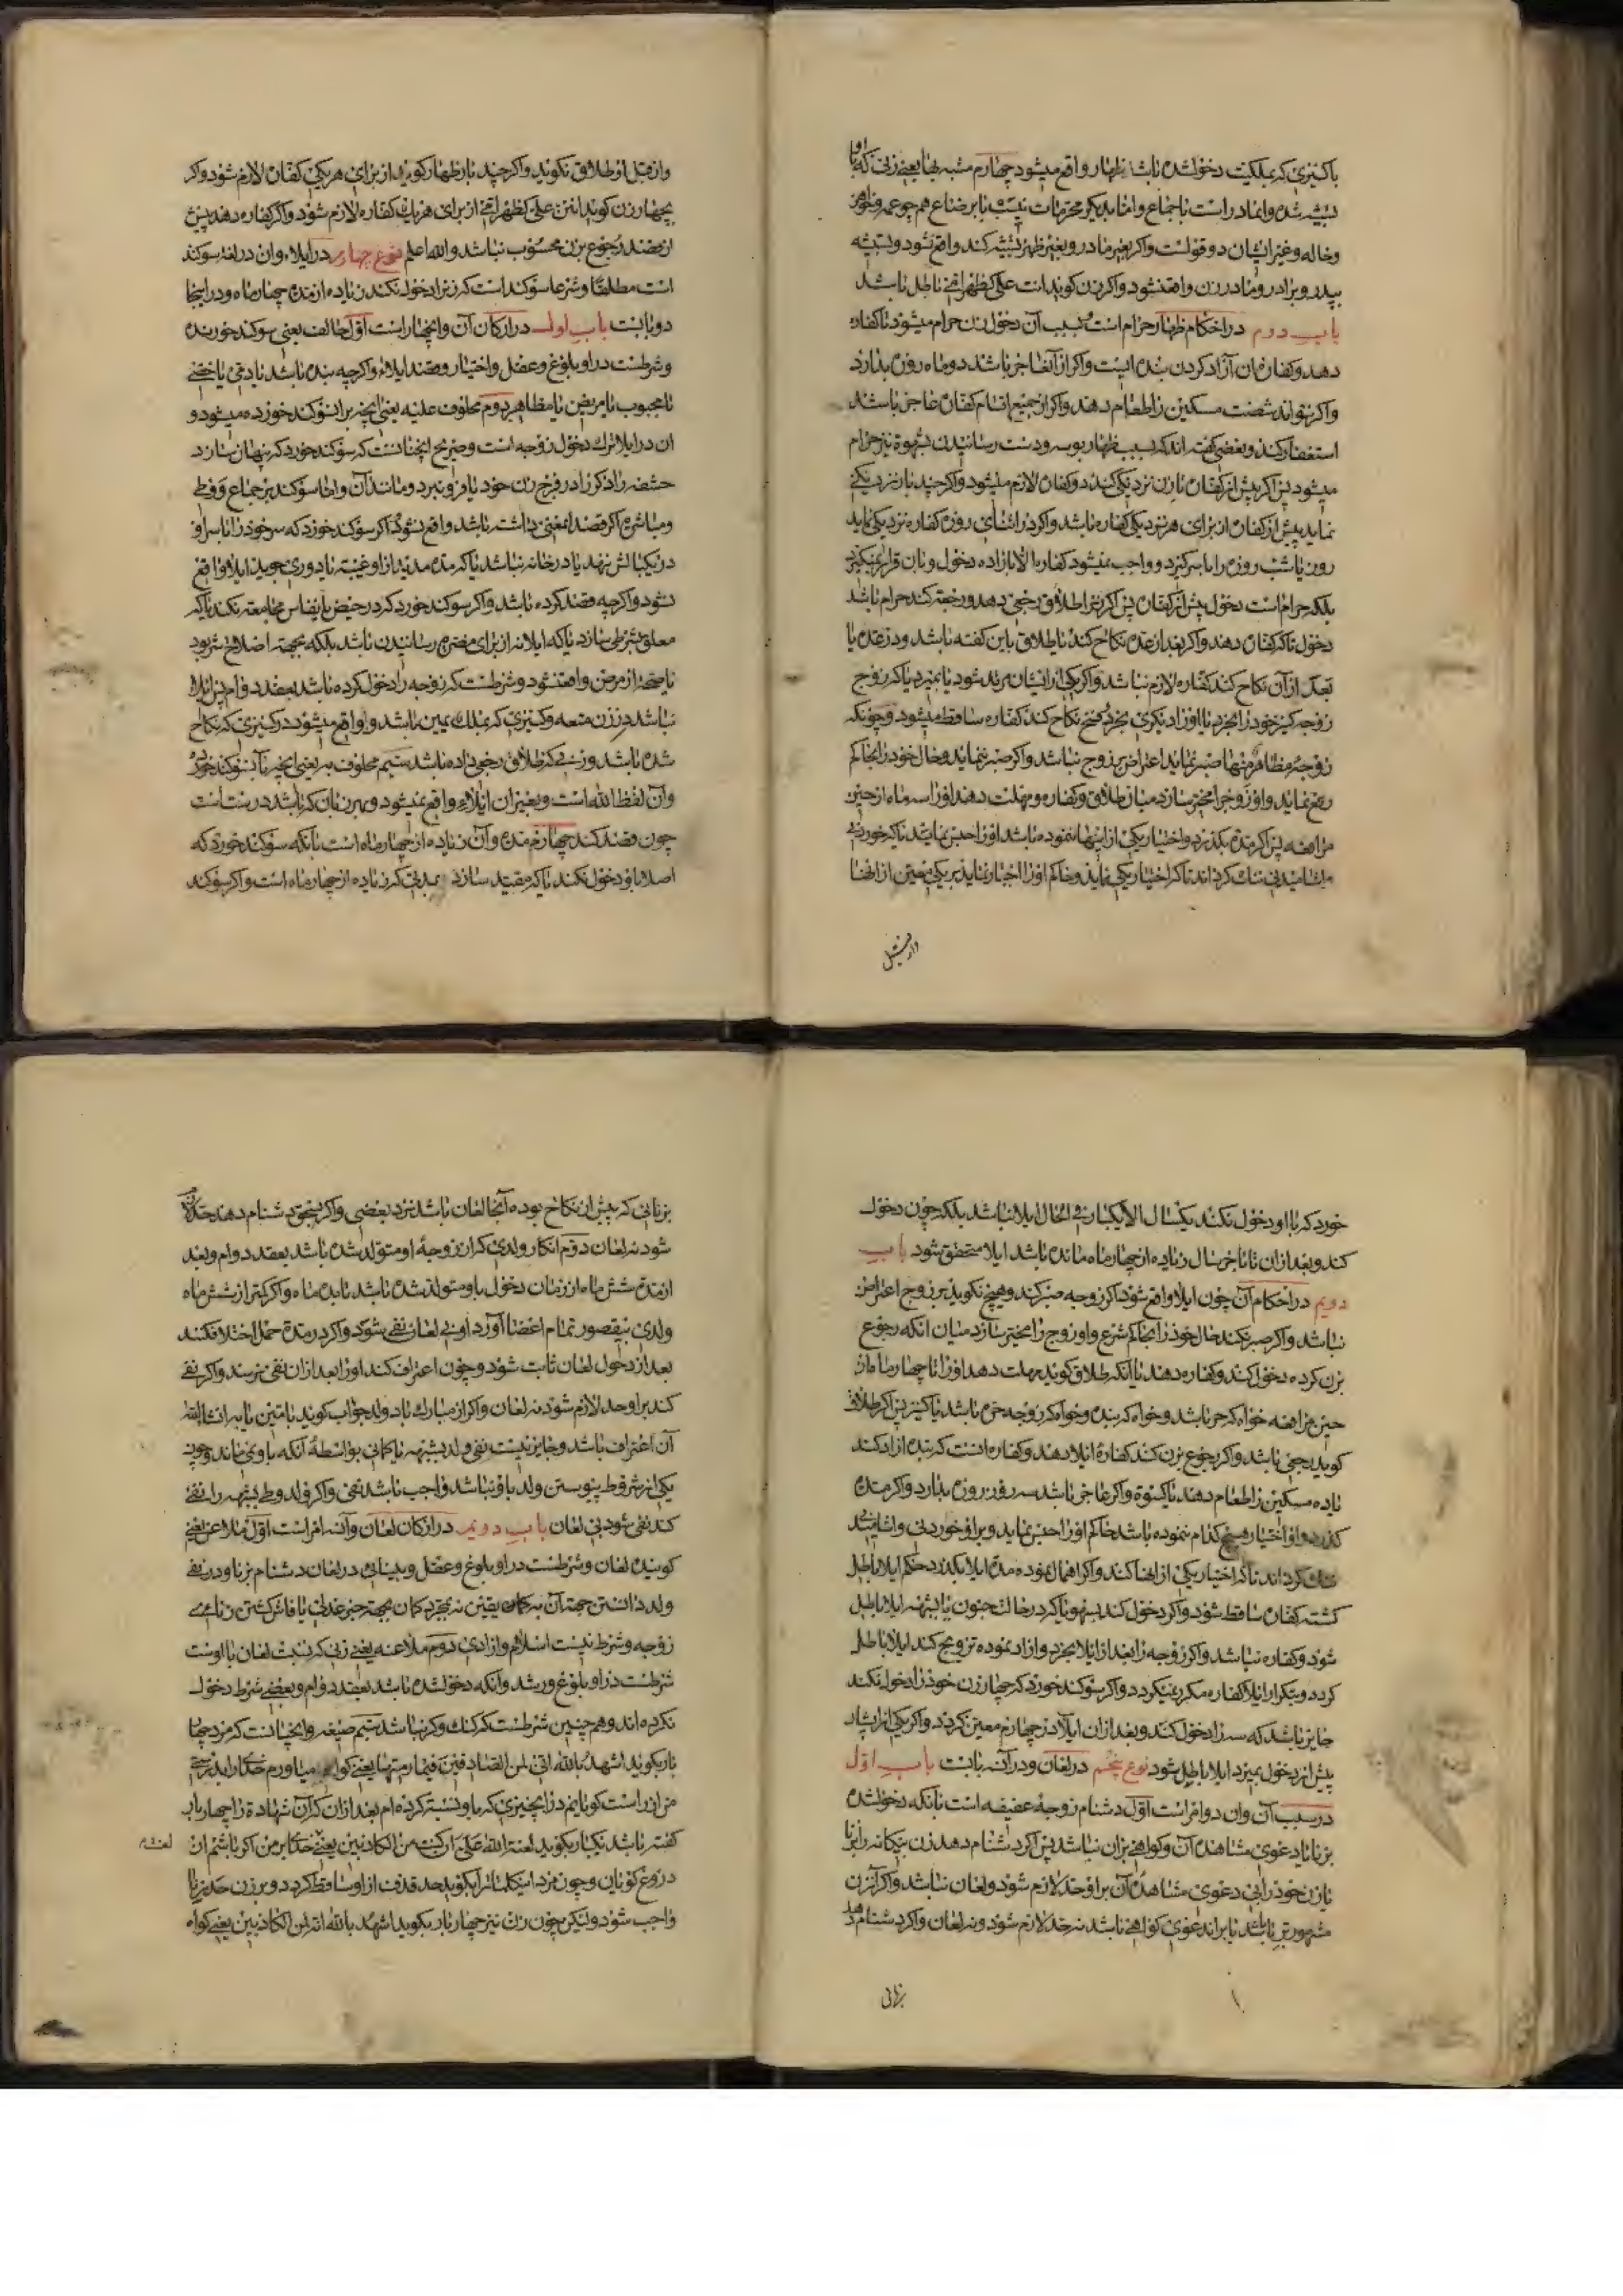 باکنیزی که بملکیت دخولشده باشد ظهار واقع میشود چهارم مشبه بها یعنی زنی که باو
تشبیه شده و اما در است باجماع و اما بدیگر محرمات نسبی یا برضاع هم چو عمه و خواهر
و خاله و غیر ایشان دو قولست و اگر بغیر مادر و بغیر ظهر تشبیه کند واقع نشود و بتشبیه
بپدر و برادر و مادر زن واقع نشود و اگر زن گوید انت علی کظهر امی باطل باشد
باب دوم در احکام ظهار حرام است بسبب آن دخول زن حرام میشود تا کفاره
دهد و کفاره ان آزاد کردن بنده ایست و اگر از آنها عاجز باشد دو ماه روزه بدارد
و اگر نتواند شصت مسکین را طعام دهد و اگر از جمیع اقسام کفاره عاجز باشد
استغفار کند و بعضی گفته اند که بسبب ظهار بوسه و دست رسانیدن بشهوة نیز حرام
میشود پس اگر پیش از کفاره با زن نزدیکی کند دو کفاره لازم میشود و اگر چند بار نزدیکی
نماید پیش از کفاره از برای هر نزدیکی کفاره باشد و اگر در اثنای روزه کفاره نزدیکی نماید
روز یا شب روزه را باسر گیرد و واجب نمیشود کفاره الا باراده دخول و بان قرار نمیگیرد
بلکه حرام است دخول پیش از کفاره پس اگر زنرا طلاق رجعی دهد و رجعت کند حرام باشد
دخول تا که کفاره دهد و اگر بعد از عده نکاح کند یا طلاق باین گفته باشد و در عده یا
بعد از آن نکاح کند کفاره لازم نباشد و اگر یکی از ایشان مرتد شود یا بمیرد یا که زوج
زوجه کنیز خود را بخرد یا او را دیگری بخرد و فسخ نکاح کند کفاره ساقط میشود و چونکه
زوجه مظاهر منها صبر نماید اعتراض بزوج نباشد و اگر صبر ننماید و حال خود را بحاکم
رفع نماید و او زوج را مخیر سازد میان طلاق و کفاره و مهلت دهد او را سه ماه از حین
مرافعه پس اگر مدة بگذرد و اختیار یکی از اینها ننموده باشد او را حبس نماید تا که خوردنی
و اشامیدنی تنک گرداند تا که اختیار یکی نماید و حاکم او را اجبار ننماید بر یکی معین از انها
و از قبل او طلاق نگوید و اگر چند بار ظهار گوید از برای هر یکی کفاره لازم شود و اگر
بچهار زن گوید انتن علی کظهر امی از برای هر یک کفاره لازم شود و اگر کفاره دهد پیش
از قصد رجوع بزن محسوب نباشد والله اعلم نوع چهارم در ایلاء و ان در لغة سوکند
است مطلقا و شرعا سوکند است که زنرا دخول نکند زیاده از مدة چهار ماه و در اینجا
دو بابست باب اول در ارکان آن و انچهار است اول حالف یعنی سوکند خورنده
و شرطست در او بلوغ و عقل و اختیار و قصد ایلاء و اگر چه بنده باشد یا ذمی یا خصی
یا مجبوب یا مریض یا مظاهر دوم محلوف علیه یعنی انچه بر ان سوکند خورده میشود و
ان در ایلا ترک دخول زوجه است و صریح انچنانست که سوکند خورد که پنهان سازد
حشفه را ذکر را در فرج زن خود یا فرو نبرد و مانند آن و اما سوکند بر جماع و وطی
و مباشرة اگر قصد ایمعنی داشته باشد واقع شود اگر سوکند خورد که سر خود را با سر او
در یکبالش ننهد یا در خانه نباشد یا که مدة مدید از او غیبت یا دوری جوید ایلا واقع
نشود و اگر چه قصد کرده باشد و اگر سوکند خورد که در حیض یا نفاس مجامعت نکند یا که
معلق بشرطی سازد یا که ایلا نه از برای مضرت رسانیدن باشد بلکه بجهة اصلاح شیر بود
یا صحت از مرض واقع نشود و شرطست که زوجه را دخول کرده باشد بعقد دوام پس ایلا
نباشد در زن متعه و کنیزی که بملک یمین باشد و واقع میشود در کنیزی که نکاح
شده باشد و زنی که طلاق رجعی داده باشد سیم محلوف به یعنی انچه بآن سوکند خورد
و آن لفظ الله است و بغیر ان ایلاء واقع نمیشود و بهر زبان که باشد درست است
چون قصد کند چهارم مدة و آن زیاده از چهار ماه است بآنکه سوکند خورد که
اصلا باو دخول نکند یا که مقید سازد بمدتی که زیاده از چهار ماه است و اگر سوکند
خورد که با او دخول نکند یکسال الا یکبار فی الحال ایلا نباشد بلکه چون دخول
کند و بعد از ان تا باخر سال زیاده از چهار ماه مانده باشد ایلا متحقق شود باب
دویم در احکام آن چون ایلا واقع شود اگر زوجه صبر کند و هیچ نگوید بر زوج اعتراض
نباشد و اگر صبر نکند حال خود را بحاکم شرع و او زوج را مخیر سازد میان انکه رجوع
بزن کرده دخول کند و کفاره دهد یا آنکه طلاق گوید مهلت دهد او را تا چهار ماه از
حین مرافعه خواه که حر باشد و خواه که بنده و خواه که زوجه حره باشد یا کنیز پس اگر طلاق
گوید رجعی باشد و اگر رجوع بزن کند کفارۀ ایلا دهد و کفاره انست که بنده ازاد کند
یا ده مسکین را طعام دهد یا کسوة و اگر عاجز باشد سه روز روزه بدارد و اگر مدة
گذرد و او اختیار هیچ کدام ننموده باشد حاکم او را حبس نماید و بر او خوردنی و اشامیدنی
تنک گرداند تا که اختیار یکی از انها کند و اگر اهمال نموده مدة ایلا بگذرد حکم ایلا باطل
گشته کفاره ساقط شود و اگر دخول کند بسهو یا که در حالت جنون یا بشبهه ایلا باطل
شود و کفاره نباشد و اگر زوجه را بعد از ایلا بخرد و ازاد نموده تزویج کند ایلا باطل
گردد و بتکرار ایلا کفاره مکرر نمیگردد و اگر سوکند خورد که چهار زن خود را دخول نکند
جایز باشد که سه را دخول کند و بعد از ان ایلا در چهارم معین گردد و اگر یکی از ایشان
پیش از دخول بمیرد ایلا باطل شود نوع پنجم در لعان و در آن سه بابست باب اول
در سبب آن و ان دو امر است اول دشنام زوجۀ عفیفه است بانکه دخولشده
بزنا با دعوی مشاهدۀ آن و گواهی بر ان نباشد پس اگر دشنام دهد زن بیکانه را بزنا
یا زن خود را بی دعوی مشاهدۀ آن بر او حد لازم شود و لعان نباشد و اگر آنزن
مشهور بزنا باشد یا بر اندعوی گواهی باشد نه حد لازم شود و نه لعان و اگر دشنام دهد
بزنائی
بزنائی که پیش از نکاح بوده آنجا لعان باشد نزد بعضی و اگر دشنام دهد حد لازم
شود نه لعان دوم انکار ولدی که از زوجۀ او متولد شده باشد بعقد دوام و بعد
از مدة شش ماه از زمان دخول باو متولد شده باشد تا بده ماه و اگر کمتر از شش ماه
ولدی بیقصور تمام اعضا آورد او بی لعان نفی شود و اگر در مدة حمل اختلاف کنند
بعد از دخول لعان ثابت شود و چون اعتراف کند او را بعد از ان نفی نرسد و اگر نفی
کند بر او حد لازم شود نه لعان و اگر از مبارک باد ولد جواب گوید بامین یا بانشاالله
آن اعتراف باشد و جایز نیست نفی ولد بشبهه یا گمانی بواسطۀ آنکه باو نمی ماند و چون
یکی از شروط پیوستن ولد باو نباشد واجب باشد نفی و اگر ولد وطی بشبهه را نفی
کند نفی شود بی لعان باب دویم در ارکان لعان و آن سه امر است اول ملاعن یعنی
گویندۀ لعان و شرطست در او بلوغ و عقل و بینائی در لعان دشنام بزنا و در نفی
ولد دانستن جهة آن بر یقین نه بمجرد گمان بجهة خبر عدلی یا فاش گشتن زنای
زوجه و شرط نیست اسلام و ازادی دوم ملاعنه یعنی زنی که نسبت لعان با اوست
شرطست در او بلوغ و رشد و آنکه دخولشده باشد بعقد دوام و بعضی شرط دخول
نکرده اند و هم چنین شرطست که گنک و کر نباشد سیم صیغه و انچنانست که مرد چهار
بار بگوید اشهد بالله انی لمن الصادقین فیما رمیتها یعنی گواه میاورم خدای را بدرستی
من از راست گویانم در انچیزی که باو نسبت کرده ام بعد از ان که آن شهادة را چهار بار
گفته باشد یکبار بگوید لعنة الله علی ان کنت من الکاذبین یعنی لعنت خدا بر من اگر باشم از
دروغ گویان و چون مرد اینکلماترا بگوید حد قذف از او ساقط گردد و بر زن حد زنا
واجب شود و لیکن چون زن نیز چهار بار بگوید اشهد بالله انه لمن الکاذبین یعنی گواه